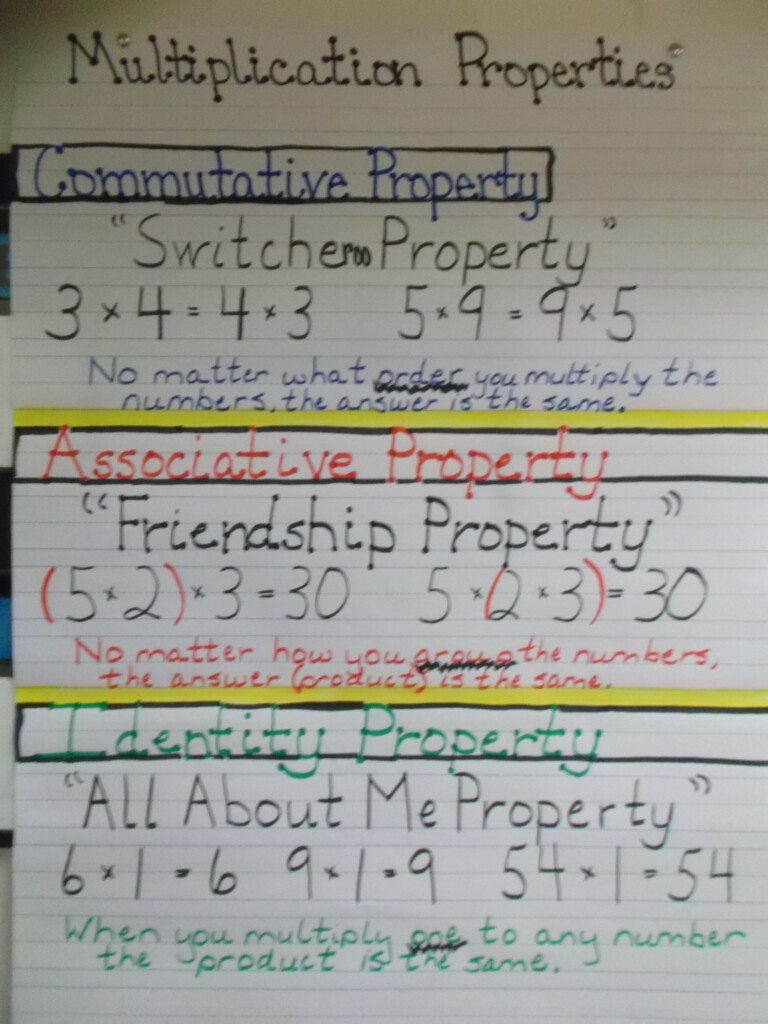 Multiplication Properties
Commutative Property
"Switcheroo Property"
3 × 4 = 4 × 3 5 × 9 = 9 × 5
No matter what order you multiply the
numbers, the answer is the same.
Associative Property
"Friendship Property"
(5 × 2) × 3 = 30 5 × (2 × 3) = 30
No matter how you group the numbers,
the answer (product) is the same.
Identity Property
"All About Me Property"
6 × 1 = 6 9 × 1 = 9 54 × 1 = 54
When you multiply one to any number
the product is the same.